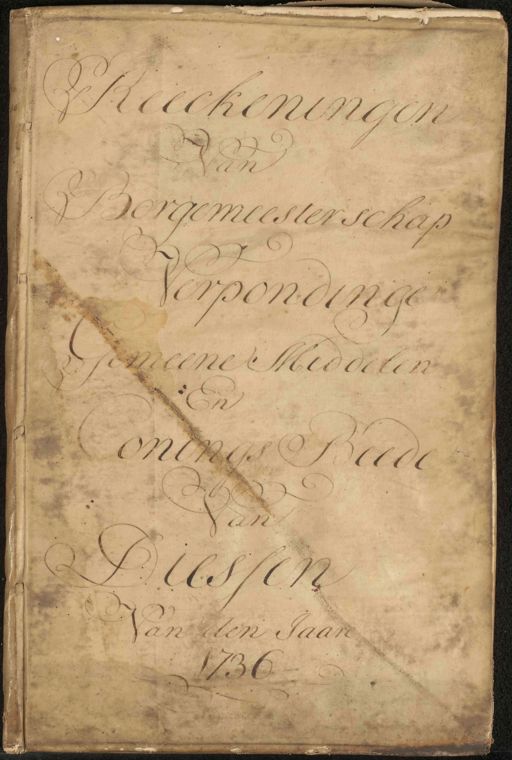 Reeckeningen
Van
Borgemeesterschap
Verpondinge
Gemeene Middelen
En
Conings Beede
Van
Diessen
Van den Jaare
1736